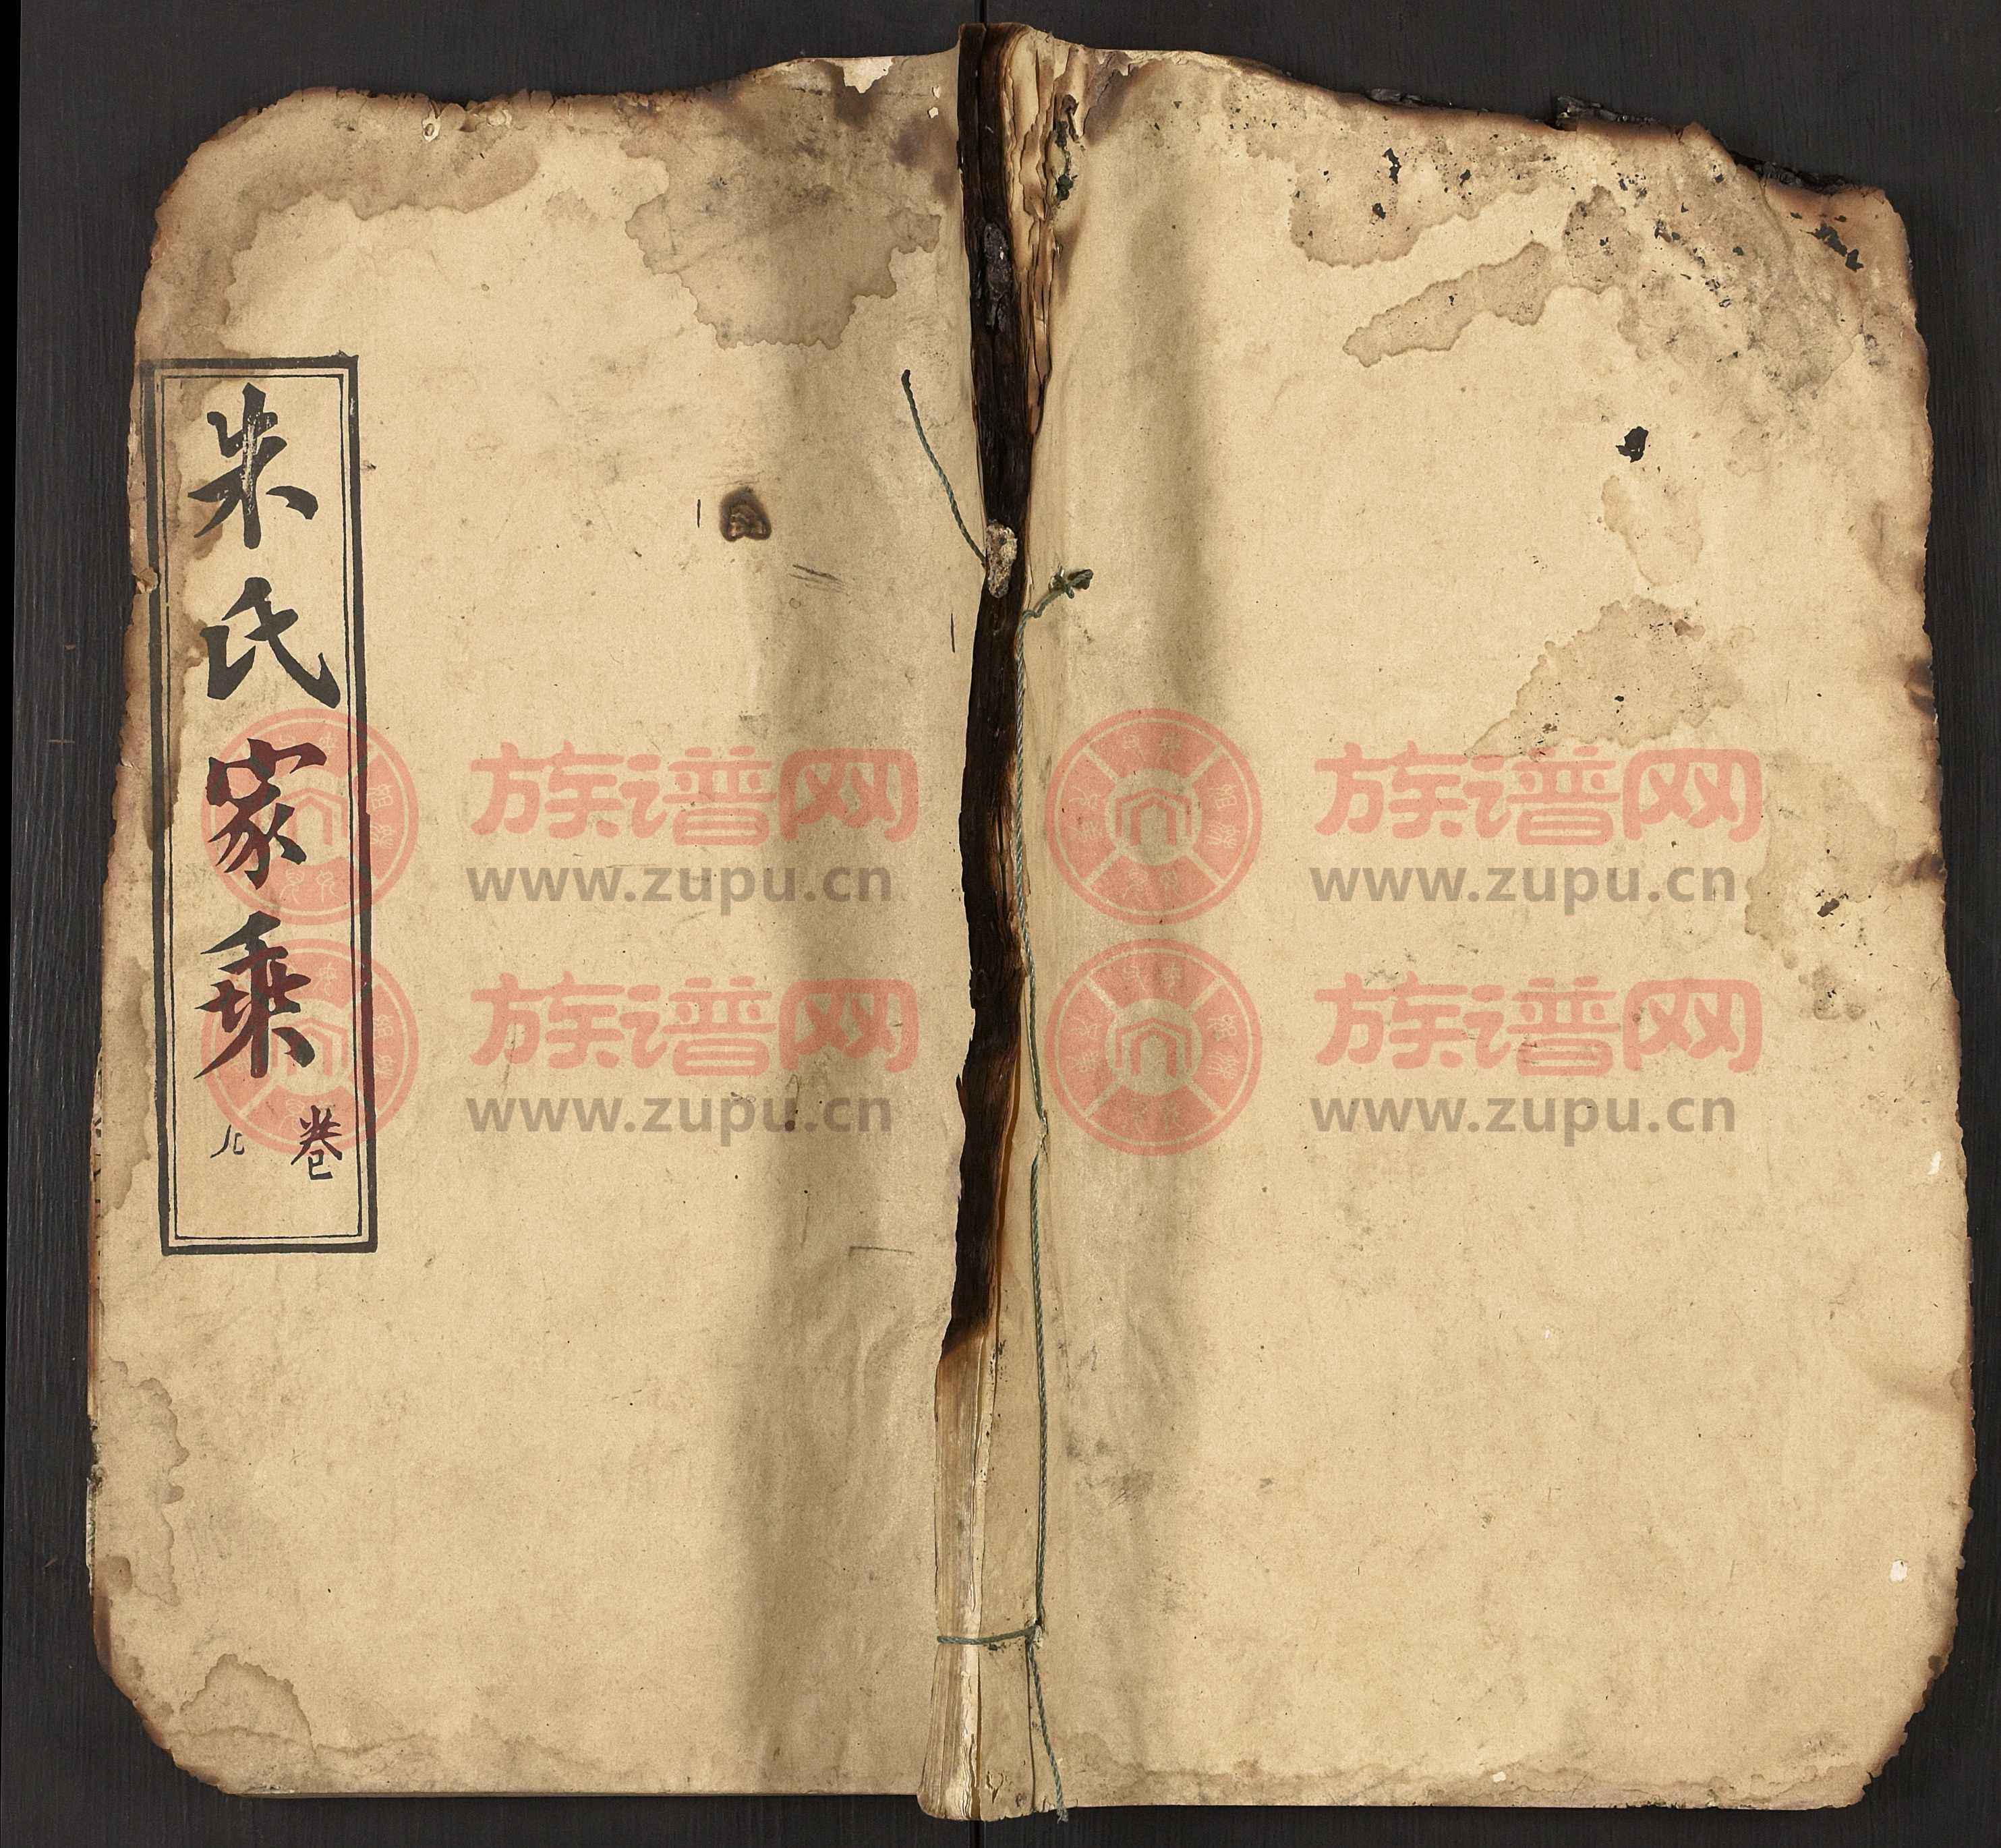 朱氏家乘
卷
九
族谱网
www.zupu.cn
族谱网
www.zupu.cn
族谱网
www.zupu.cn
族谱网
www.zupu.cn